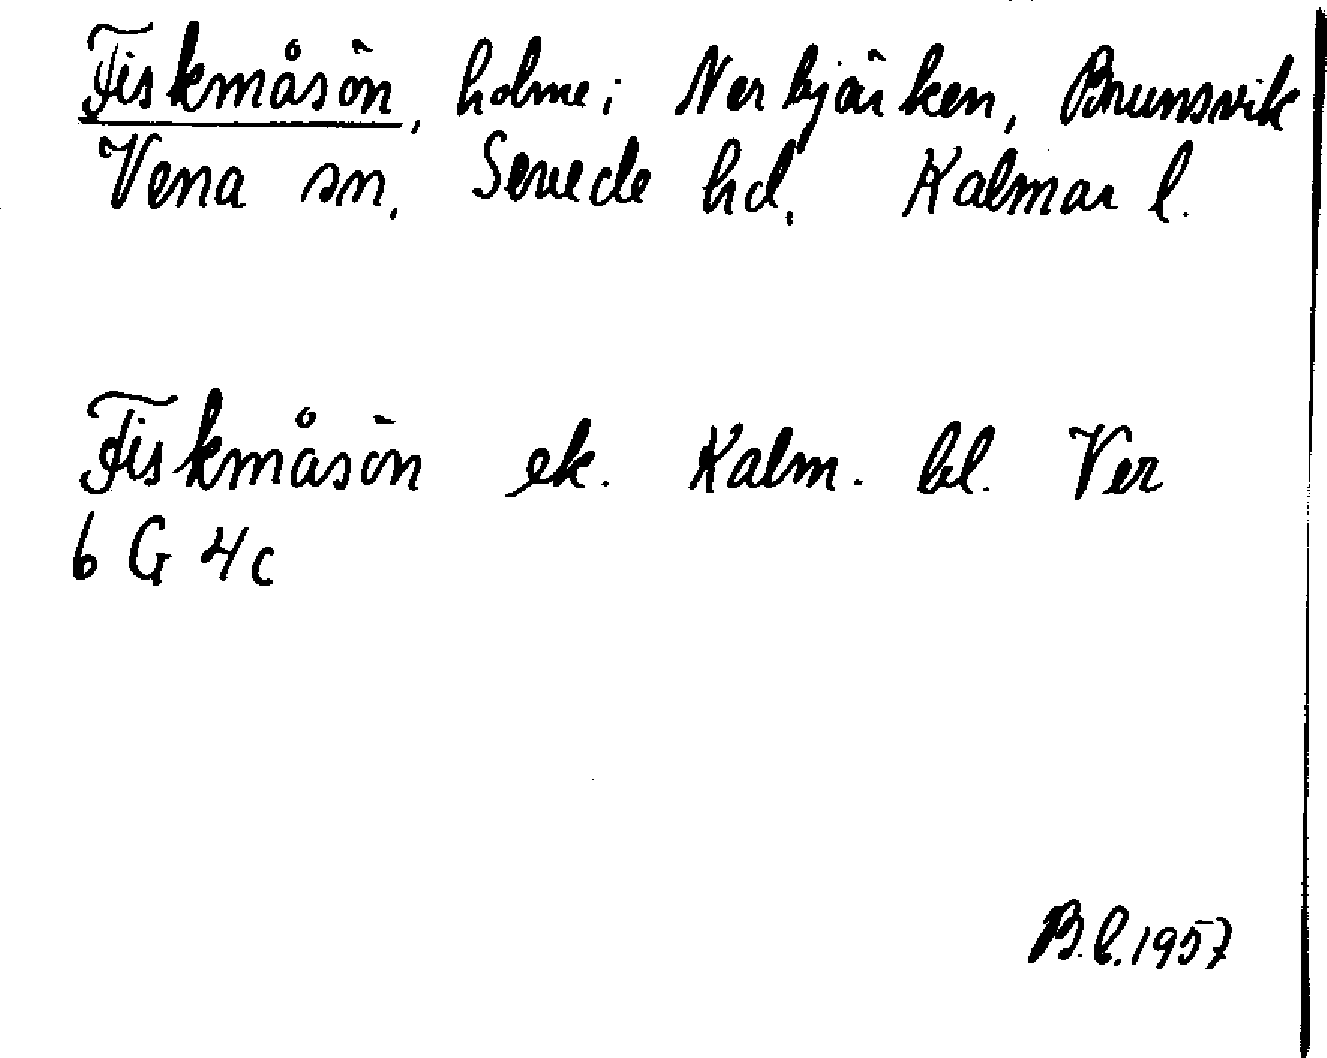 Fiskmåsön, holme i Nerbjärken, Brunsvik
Vena sn. Sevede hd. Kalmar l.
Fiskmåsön ek. Kalm. bl. Ver
6 G 4c
B.L. 1957